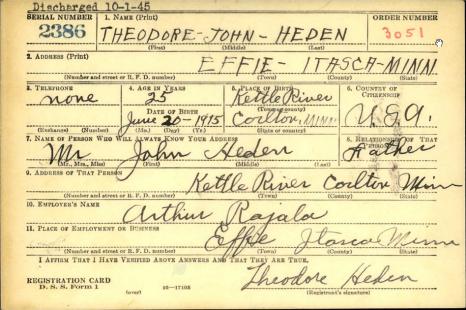 Discharged 10-1-45
SERIAL NUMBER 1. NAME (Print) ORDER NUMBER
2386 THEODORE-JOHN-HEDEN 3051
(First) (Middle) (Last)
2. ADDRESS (Print)
EFFIE- ITASCA-MINN
(Number and street or R. F. D. number) (Town) (County) (State)
3. TELEPHONE 4. AGE IN YEARS 5. PLACE OF BIRTH 6. COUNTRY OF CITIZENSHIP
none 25 Kettle River
DATE OF BIRTH (Town or county)
June 20-1915 Corlton, MINN U.S.A.
(Exchange) (Number) (Mo.) (Day) (Yr.) (State or country)
7. NAME OF PERSON WHO WILL ALWAYS KNOW YOUR ADDRESS 8. RELATIONSHIP OF THAT PERSON
Mr John Heden Father
(Mr., Mrs., Miss) (First) (Middle) (Last)
9. ADDRESS OF THAT PERSON
Kettle River Corlton Minn
(Number and street or R. F. D. number) (Town) (County) (State)
10. EMPLOYER'S NAME
Arthur Rajala
11. PLACE OF EMPLOYMENT OR BUSINESS
Effie Itasca Minn
(Number and street or R. F. D. number) (Town) (County) (State)
I AFFIRM THAT I HAVE VERIFIED ABOVE ANSWERS AND THAT THEY ARE TRUE.
Theodore Heden
REGISTRATION CARD
D. S. S. Form 1 (over) 16-17105 (Registrant's signature)